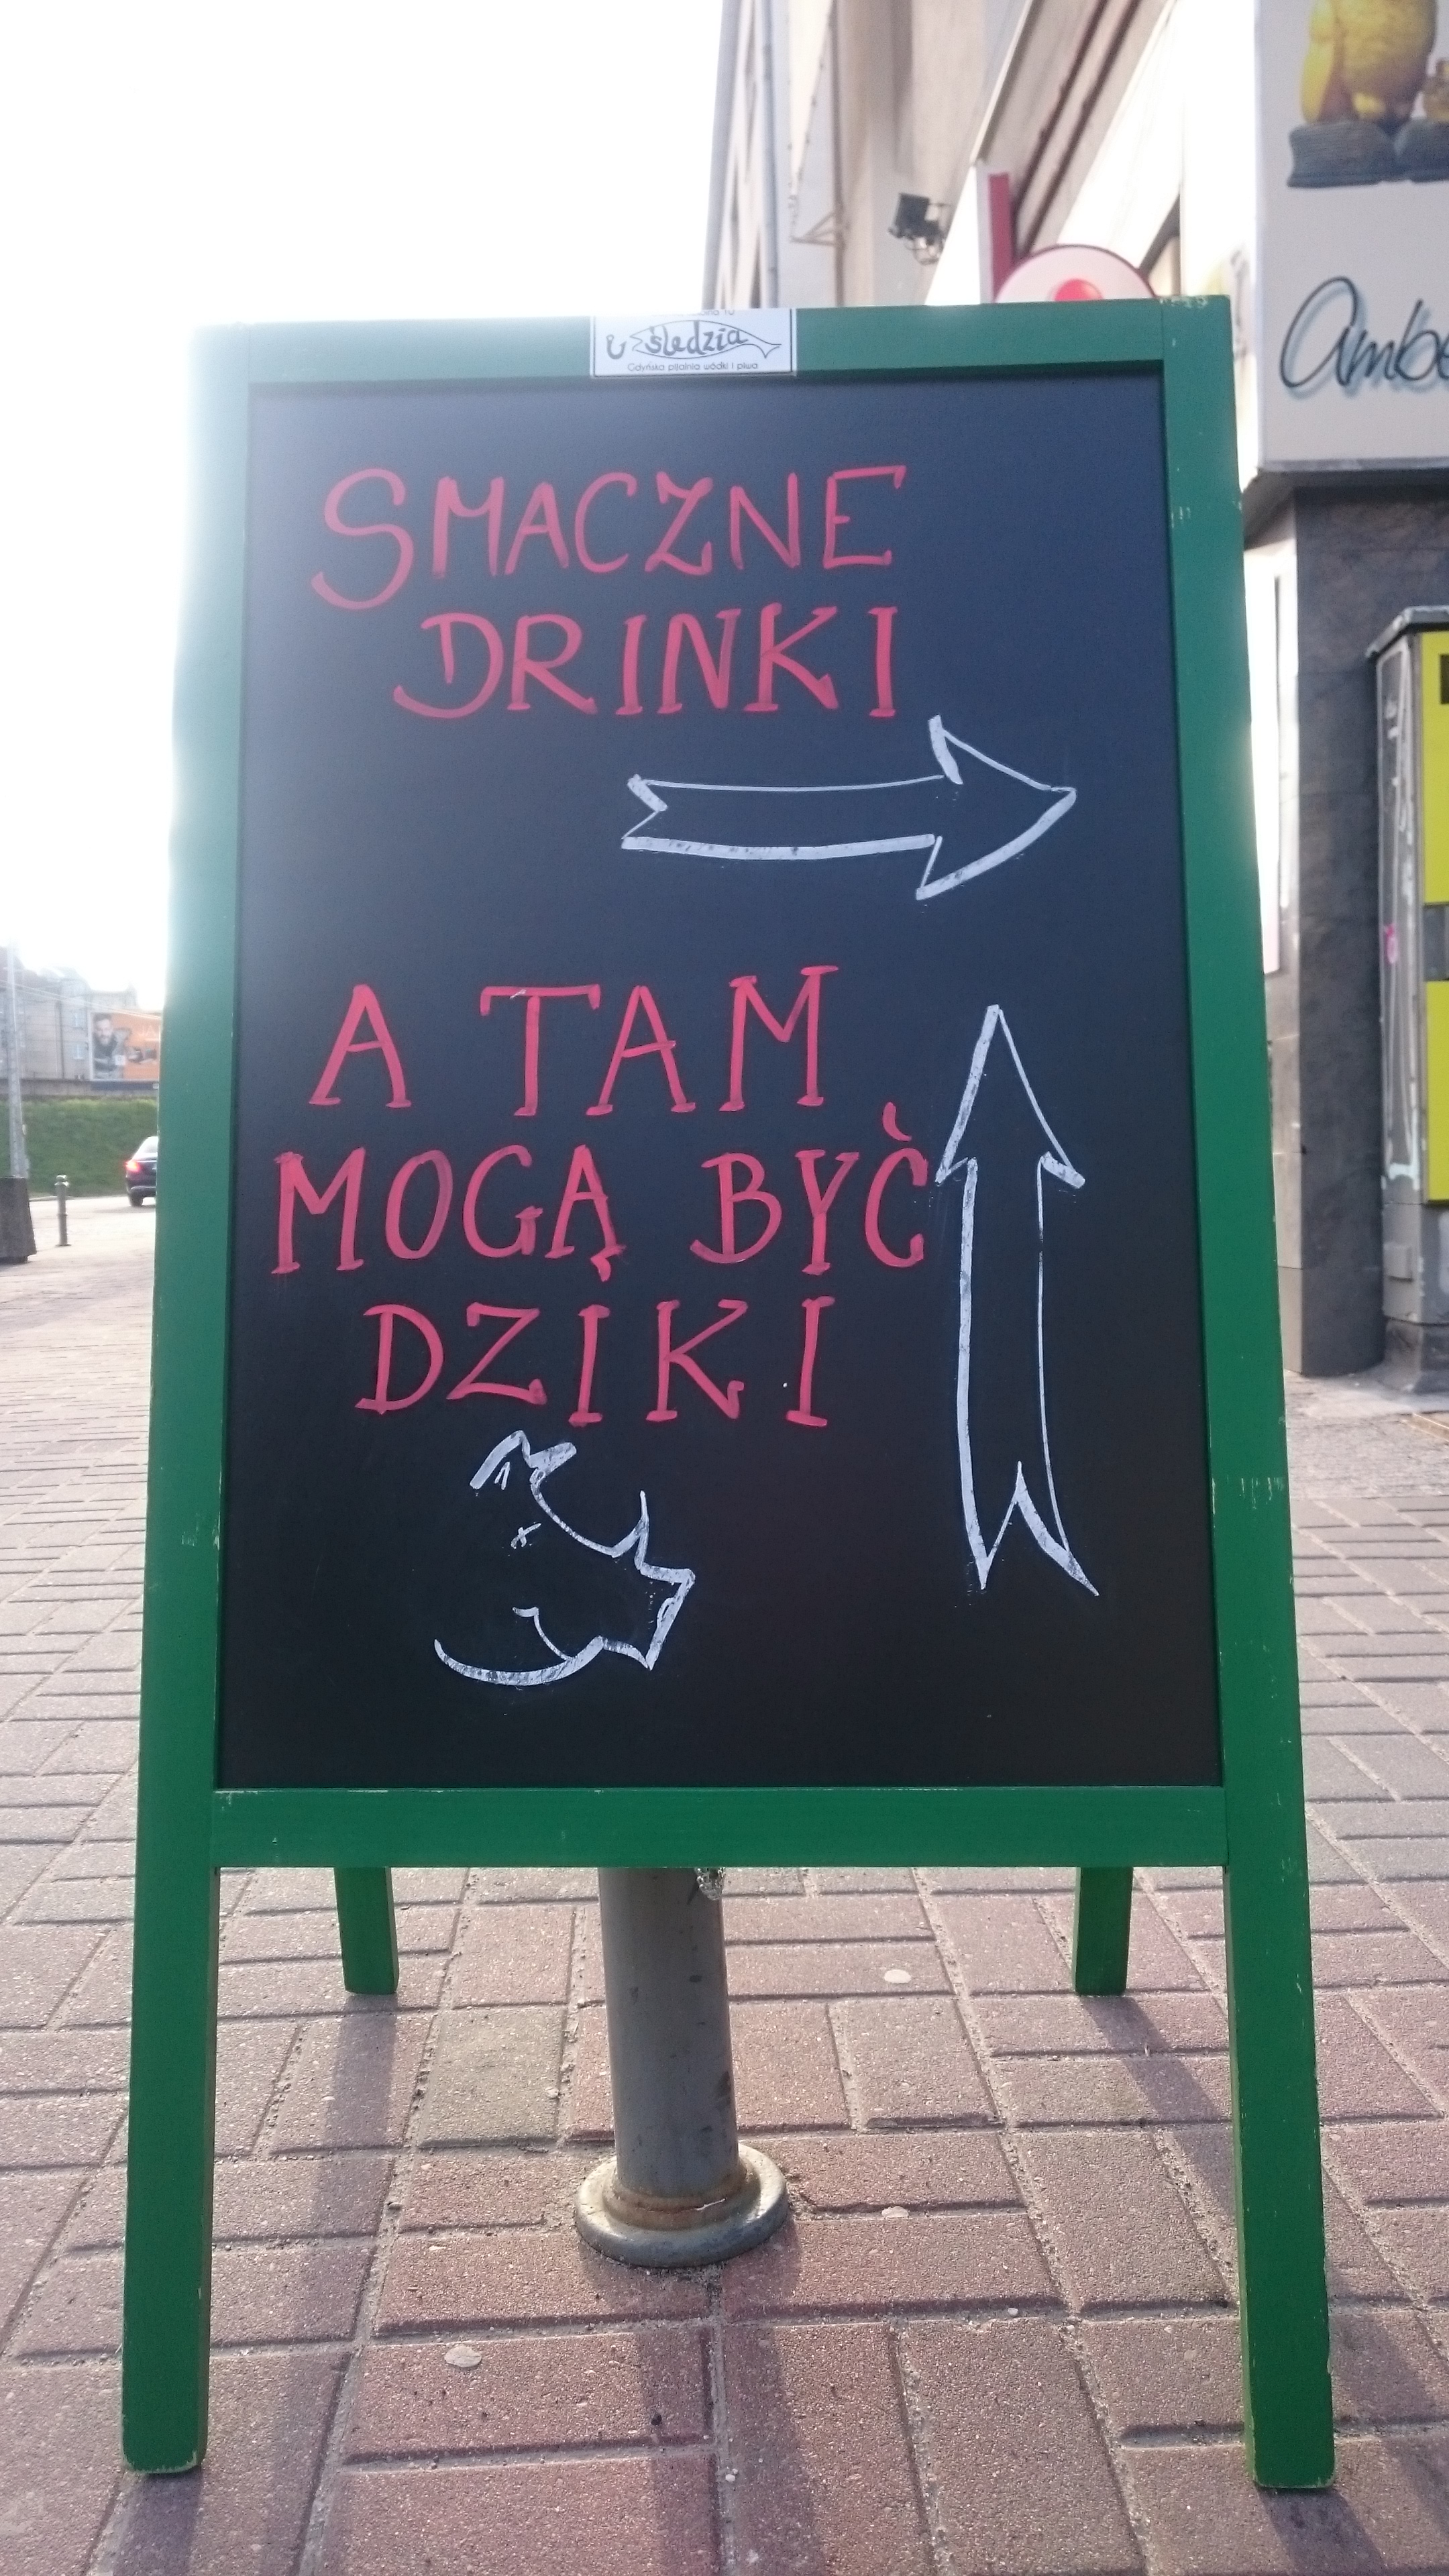 U śledzia
Gdyńska pijalnia wódki i piwa
SMACZNE
DRINKI
A TAM
MOGĄ BYĆ
DZIKI